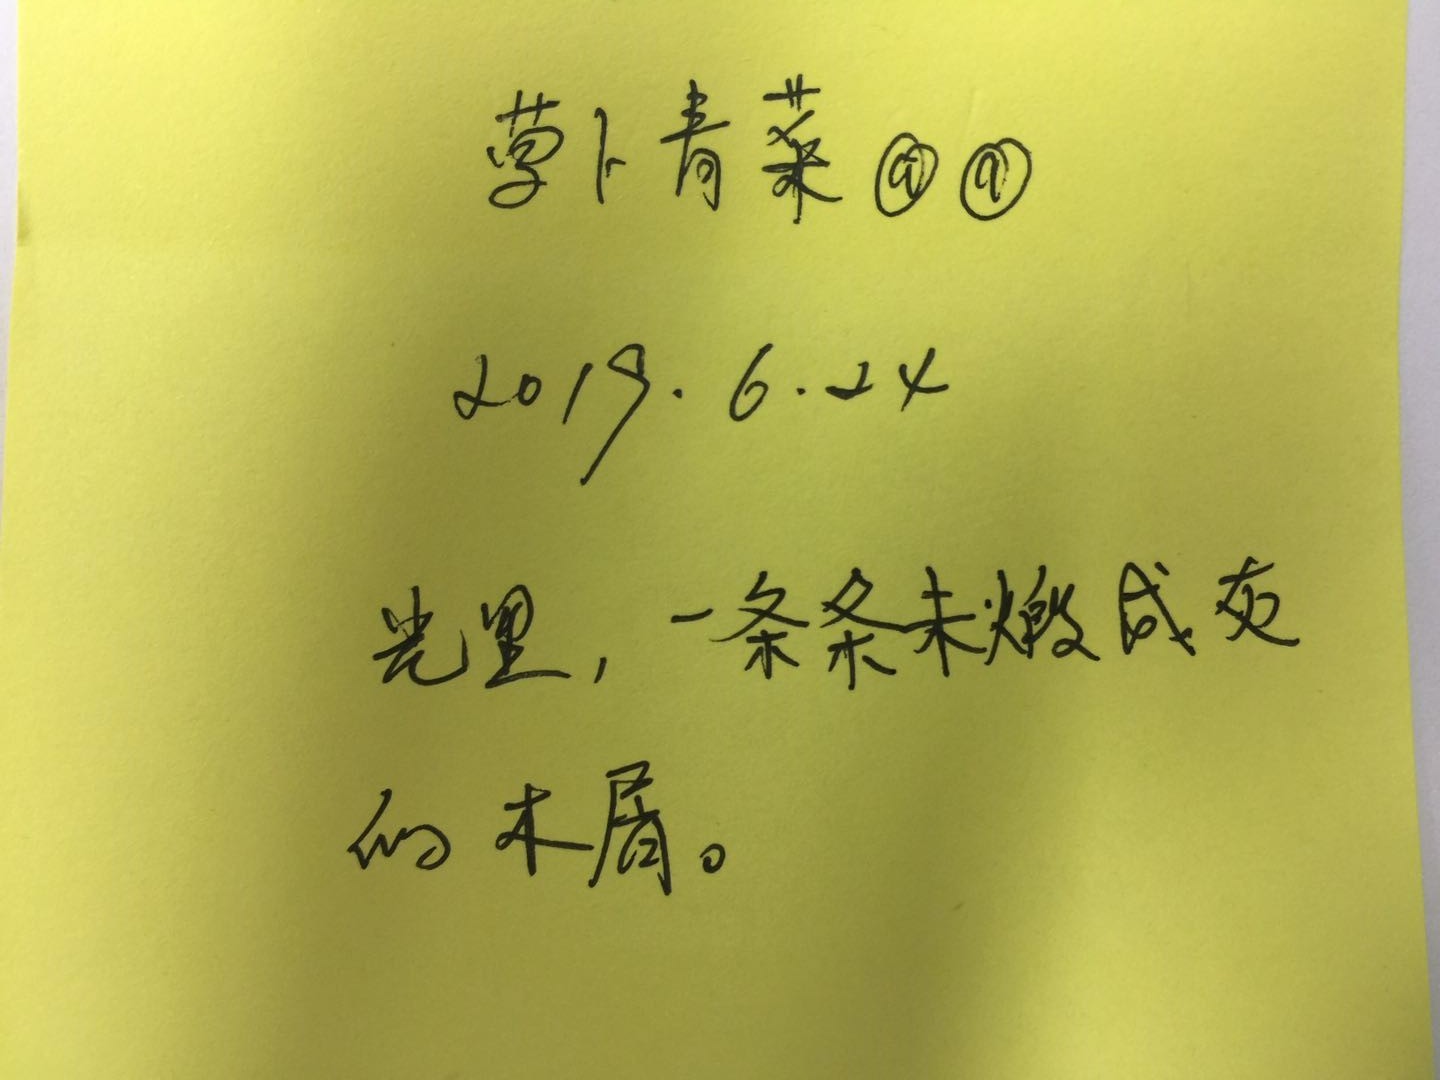 萝卜青菜@@
2019.6.24
光里，一条条未燬成灰
的木屑。